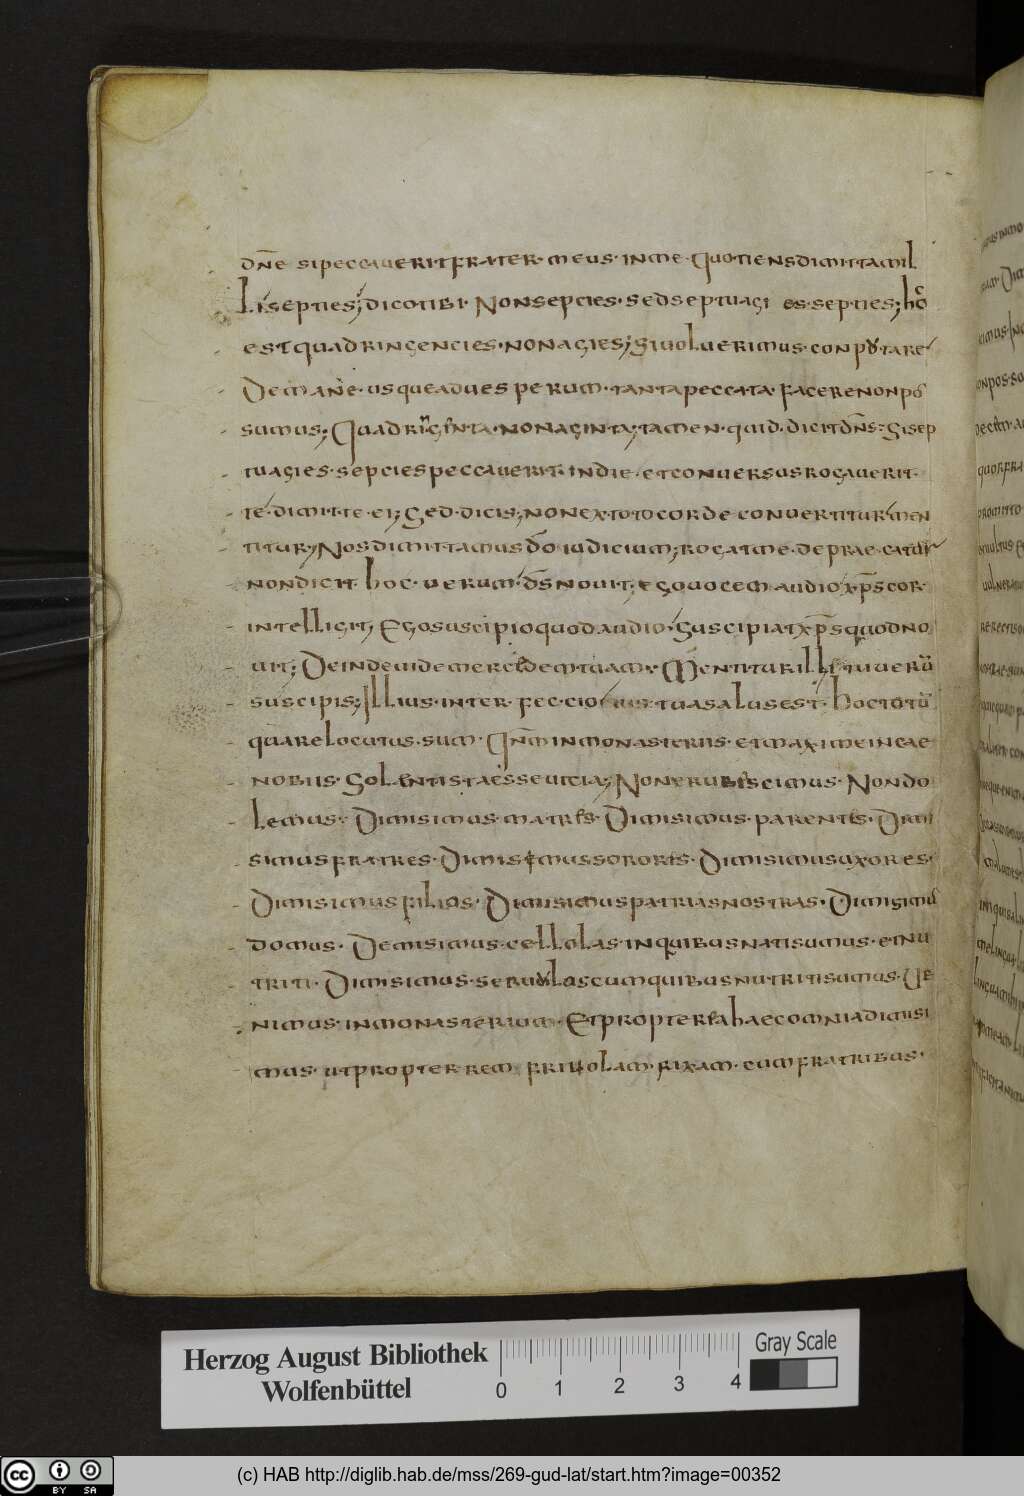 dn̄e si peccaverit frater· meus· in me· quotiens dimittam il
li septies; dico tibi· Non septies· sed septuagi es· septies; hoc̄
est quadringencies· nonagies; Si voluerimus· conputare
De mane· usque ad vesperum· tanta peccata· facere non pos
sumus; Quadringinta· nonaginta; tamen· quid· dicit dn̄s: Si sep
tuagies· sepcies peccaverit· in die· et conversus rogaverit·
te· dimitte· ei; Sed· dicis; non ex· toto corde convertitur men
titur; Nos dimittamus dō iudicium; rogat me· deprae catur
non dicit· hoc· verum· ds̄ novit; ego vocem audio xp̄s cor
intelligit; Ego suscipio quod audio· Suscipiat xp̄s quod no
vit; Deinde vide mercedem tuam· Mentitur ille tu verū
suscipis; Illius· inter· feccio tua salus est· hoc totū
quare locutus· sum· In mon̄ in monasteriis· et maxime in cae
nobiis· Solent ista esse vitia; Non erubiscimus· Non do
lemus· Dimisimus· matres· Dimisimus· parentes· Dimi
simus fratres· Dimisimus sorores· Dimisimus uxores·
Dimisimus filios· Dimisimus patrias nostras· Dimisimus
domus· Demisimus· cellolas· in quibus nati sumus· et nu
triti· Dimisimus· servulas cum quibus nutriti sumus· Ve
nimus· in monasterium· Et propterea haec omnia dimisi
mus· ut propter rem frivolam· rixam· cum fratribus·
Herzog August Bibliothek
Wolfenbüttel
0 1 2 3 4
Gray Scale
cc BY SA
(c) HAB http://diglib.hab.de/mss/269-gud-lat/start.htm?image=00352